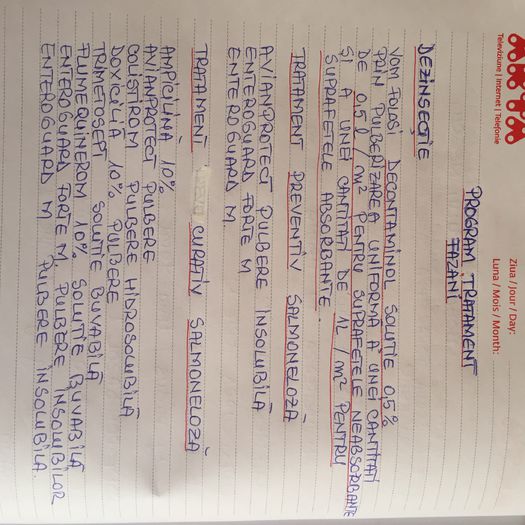 Televiziune | Internet | Telefonie
Ziua / Jour / Day:
Luna / Mois / Month:
PROGRAM TRATAMENT
FAZANI
DEZINSECȚIE
VOM FOLOSI DECONTAMINOL SOLUTIE 0,5%
PRIN PULBERIZAREA UNIFORMA A UNEI CANTITATI
DE 0,5 l / m² PENTRU SUPRAFETELE NEABSORBANTE
ȘI A UNEI CANTITATI DE 1L / m² PENTRU
SUPRAFETELE ABSORBANTE.
TRATAMENT PREVENTIV SALMONELOZĂ
AVIANPROTECT PULBERE INSOLUBILĂ
ENTEROGUARD FORTE M
ENTEROGUARD M.
TRATAMENT CURATIV SALMONELOZĂ
AMPICILINA 10%
AVIANPROTECT PULBERE
COLISTIROM PULBERE HIDROSOLUBILĂ
DOXICILIA 10% PULBERE
TRIMETOSEPT SOLUTIE BUVABILĂ
FLUMEQUINEROM 10% SOLUTIE BUVABILĂ
ENTEROGUARD FORTE M, PULBERE INSOLUBILOR
ENTEROGUARD M PULBERE INSOLUBILĂ.